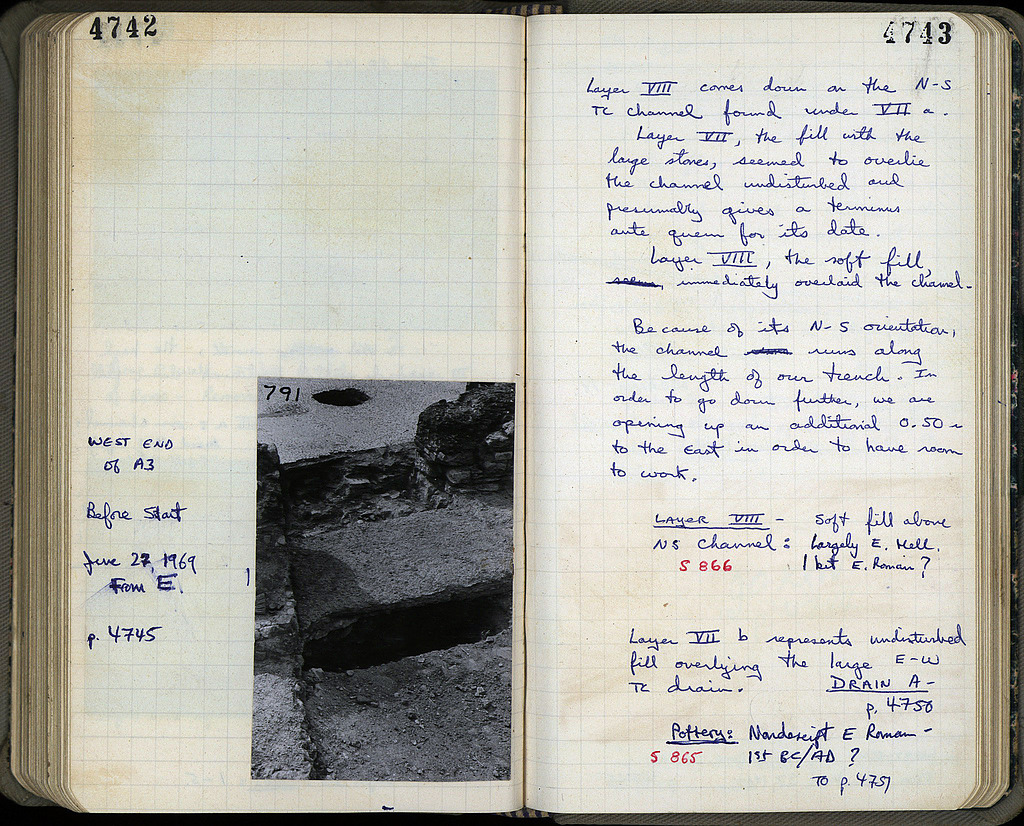 4742
791
WEST END
of A3
Before Start
June 27, 1969
From E.
p. 4745
4743
Layer VIII comes down on the N-S
TC channel found under VII a.
Layer VII, the fill with the
large stones, seemed to overlie
the channel undisturbed and
presumably gives a terminus
ante quem for its date.
Layer VIII, the soft fill,
immediately overlaid the channel.
Because of its N-S orientation,
the channel runs along
the length of our trench. In
order to go down further, we are
opening up an additional 0.50 m
to the East in order to have room
to work.
LAYER VIII - Soft fill above
NS Channel: Largely E. Hell.
S 866 1 bit E. Roman?
Layer VII b represents undisturbed
fill overlying the large E-W
TC drain. DRAIN A-
p. 4750
Pottery: Nondescript E Roman -
S 865 1st BC/AD ?
To p. 4751